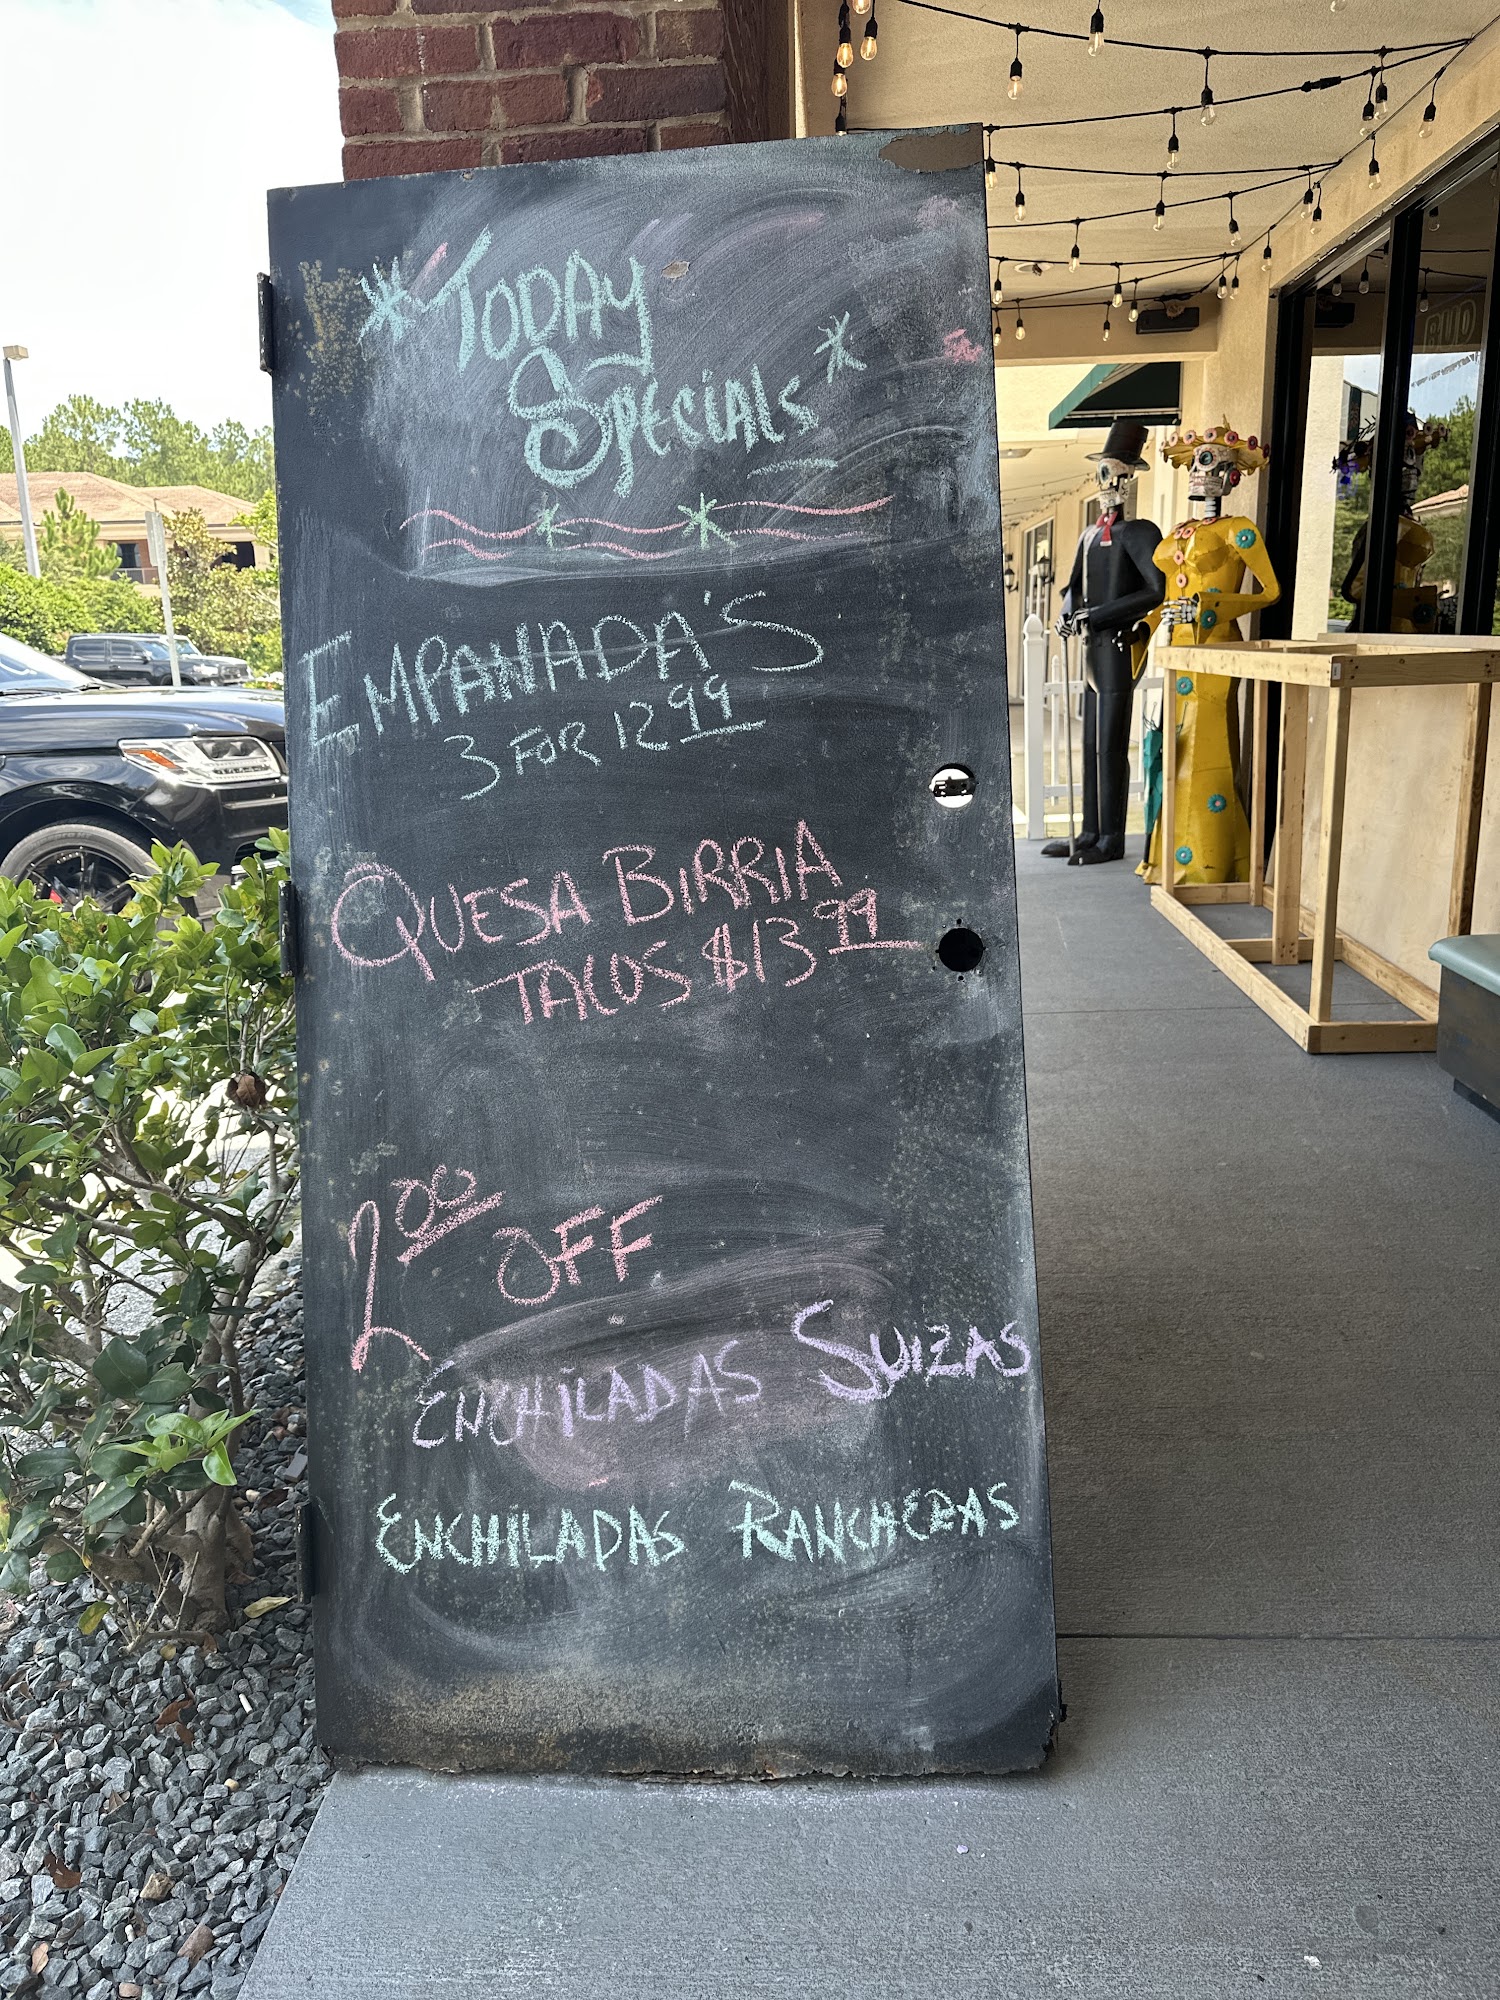 *Today
Specials*
EMPANADA'S
3 FOR 12 99
QUESA BIRRIA
TACOS $13 99
2 00 OFF
ENCHILADAS SUIZAS
ENCHILADAS RANCHERAS
BUD